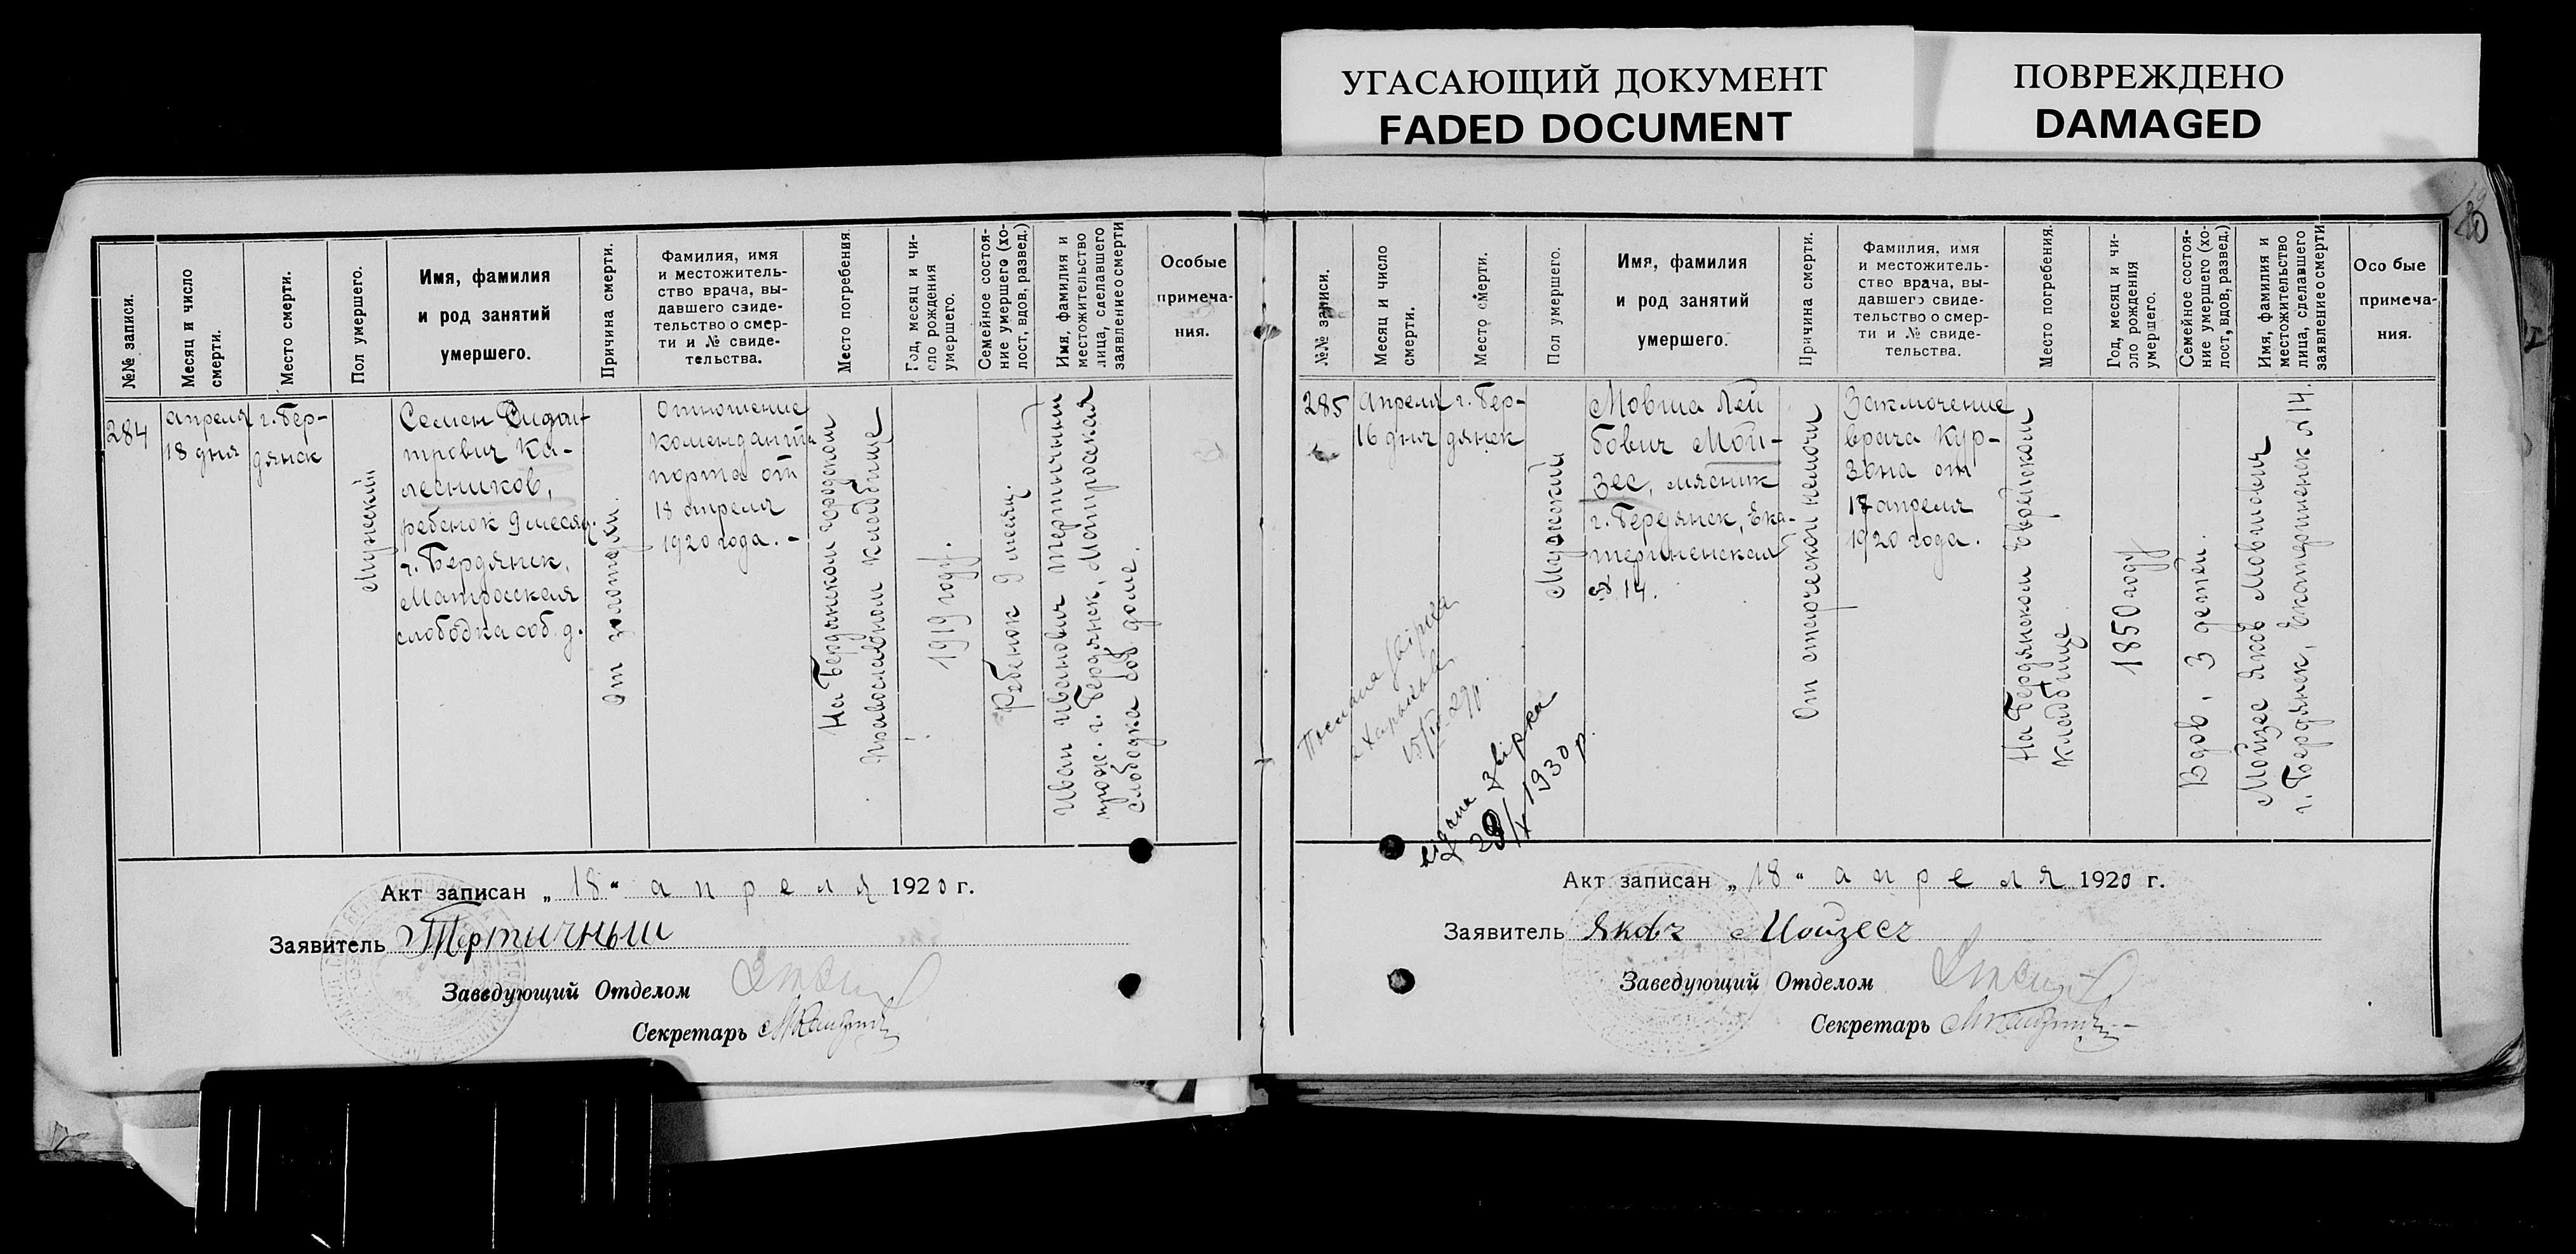 УГАСАЮЩИЙ ДОКУМЕНТ
FADED DOCUMENT
ПОВРЕЖДЕНО
DAMAGED
№№ записи.
Месяц и число
смерти.
Место смерти.
Пол умершего.
Имя, фамилия
и род занятий
умершего.
Причина смерти.
Фамилия, имя
и местожитель-
ство врача, вы-
давшего свиде-
тельство о смер-
ти и № свиде-
тельства.
Место погребения
Год, месяц и чи-
сло рождения
умершего.
Семейное состоя-
ние умершего (хо-
лост, вдов, развед.)
Имя, фамилия и
местожительство
лица, сделавшего
заявление о смерти
Особые
примеча-
ния.
284
апреля
18 дня
г. Бер-
дянск
Мужеский
Семен
трович Ка-
лесников,
ребенок 9 месяц.
г. Бердянск,
Матросская
слободка соб. д.
От золотухи.
Отношение
коменданта
порта от
18 апреля
1920 года. -
На Бердянском городском
Православном кладбище
1919 году.
Ребенок 9 месяц.
Иван Иванович Тертичный
прож. г. Бердянск, Матросская
слободка соб доме.
Акт записан „18“ апреля 1920 г.
Заявитель Тертичный
Заведующий Отделом
Секретарь
№№ записи.
Месяц и число
смерти.
Место смерти.
Пол умершего.
Имя, фамилия
и род занятий
умершего.
Причина смерти.
Фамилия, имя
и местожитель-
ство врача, вы-
давшего свиде-
тельство о смер-
ти и № свиде-
тельства.
Место погребения.
Год, месяц и чи-
сло рождения
умершего.
Семейное состоя-
ние умершего (хо-
лост, вдов, развед.)
Имя, фамилия и
местожительство
лица, сделавшего
заявление о смерти
Осо бые
примеча-
ния.
285
апреля
16 дня
г. Бер-
дянск
Мужский
Мовша Лей
бович Мой-
зес, мясник
г. Бердянск, Ека-
териненская
№ 14.
От старческой немочи
Заключение
врача Кур-
зона от
17 апреля
1920 года.
На Бердянском Еврейском
кладбище.
1850 году
Вдов, 3 детей.
Мойзес Яков Мовшович
г. Бердянск, Екатериненск № 14.
Послана звірка
в Харьков
видана звірка
29/X 1930 р.
Акт записан „18“ апреля 1920 г.
Заявитель Яковъ Мойзесъ
Заведующий Отделом
Секретарь